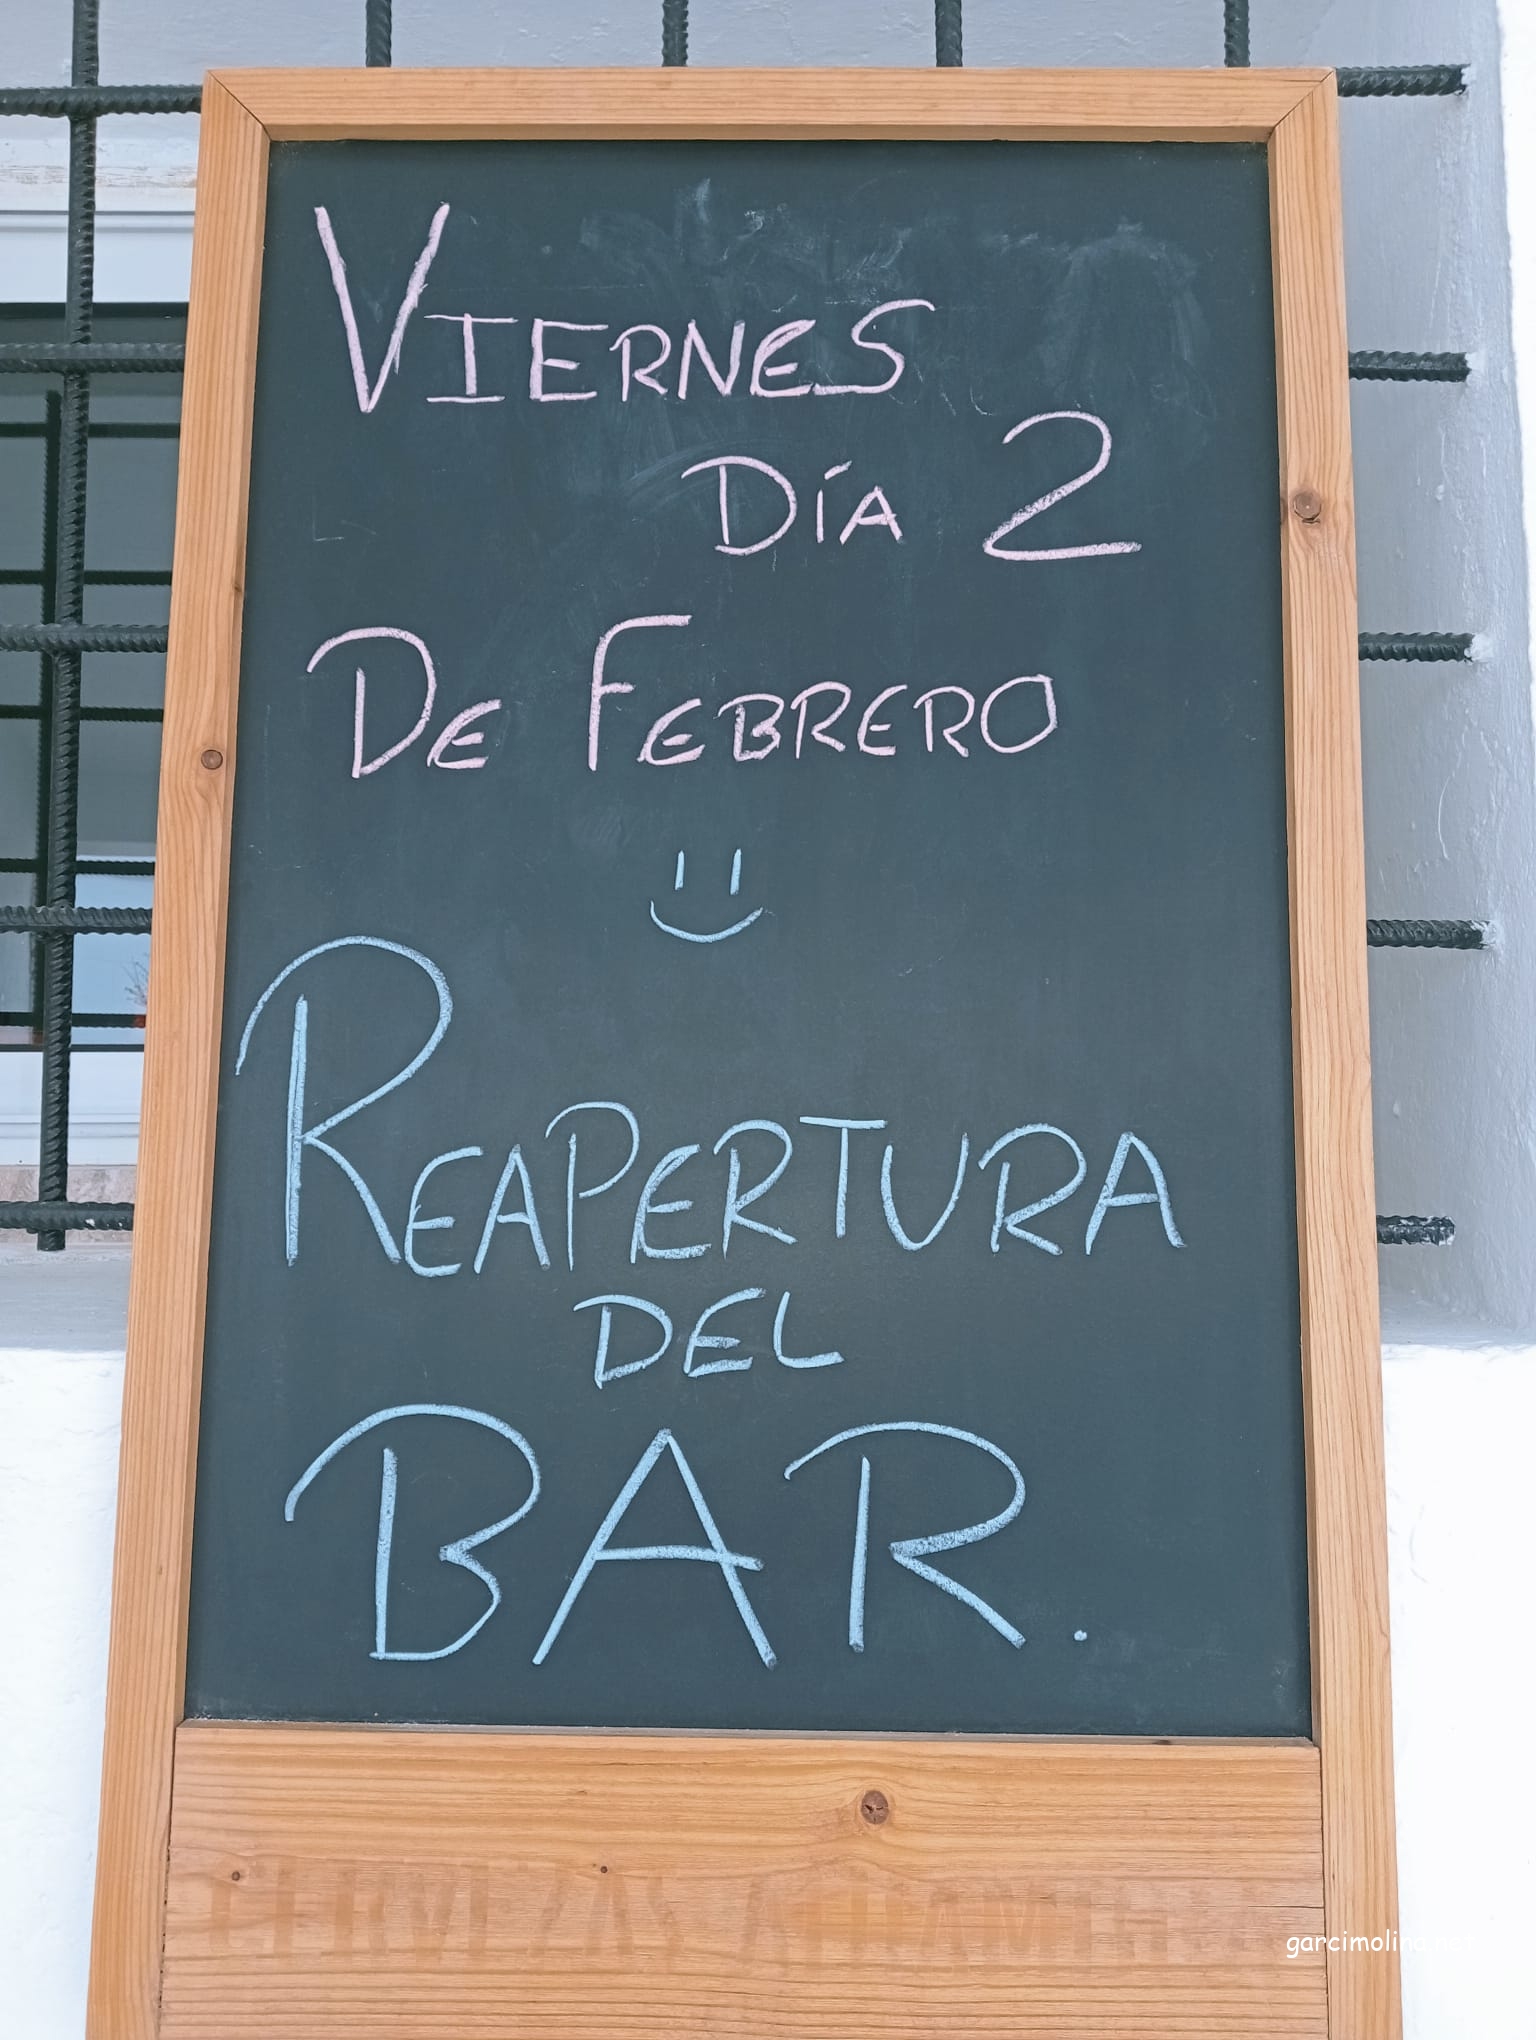 Viernes
Día 2
De Febrero
Reapertura
del
BAR.
CERVEZAS ALHAMBRA
garcimolina.net